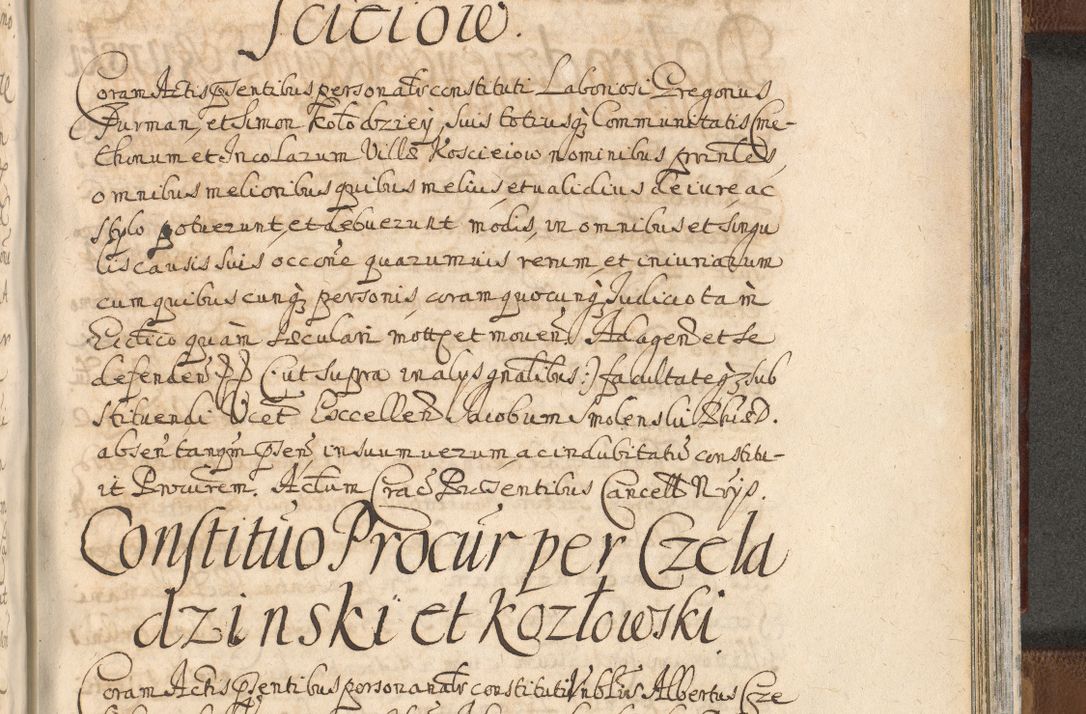 sciciow.
Coram Actis p̄sentibus personalr̄ constituti Laboriosi Gregorius
Purman, et Simon Kołodziey, suis totiusq; Communitatis Cme-
thonum et Incolarum Villæ Kosciciow nominibus
omnibus melioribus quibus melius et validius de iure ac
stylo potuerunt, et debuerunt modis, in omnibus et singu
lis causis suis occōne quarumvis rerum, et iniuriarum
cum quibuscunq; personis, coram quocunq; Judicio tam
quam seculari mott et movend Ad agend et se
defendend PP (: ut supra in alys gnālibus :) facultateq; sub
stituendi Excellen Jacobum Smolenski Ph: D.
absen̄ tanqm̄ p̄sen̄ in suum verum, ac indubitatū constitu-
it Procurem. Actum Crac̄ Præsentibus Cancell Nrijs.
Constitutio Procur per Czela
dzinski et Kozłowski
Coram Actis p̄sentibus personanalr̄ constituti Nobles Albertus Cze